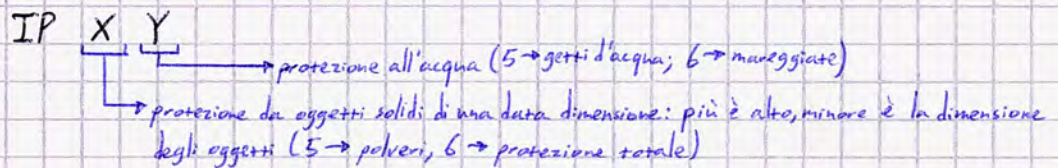 IP X Y
protezione all'acqua (5 → getti d'acqua; 6 → mareggiate)
protezione da oggetti solidi di una data dimensione: più è alto, minore è la dimensione
degli oggetti (5 → polveri, 6 → protezione totale)